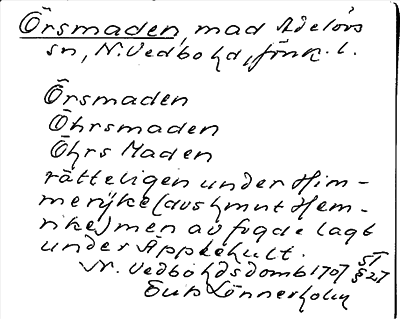 Örsmaden, mad Adelövs
sn, N. Vedbo hd, Jönk. l.
Örsmaden
Öhrsmaden
Öhrs Maden
rätteligen under Him-
merÿke (avs hmnt Hem-
rike) men av fogde lagt
under Äpplehult.
N. Vedbo hds domb 1707 ST
§ 27
Erik Lönnerholm